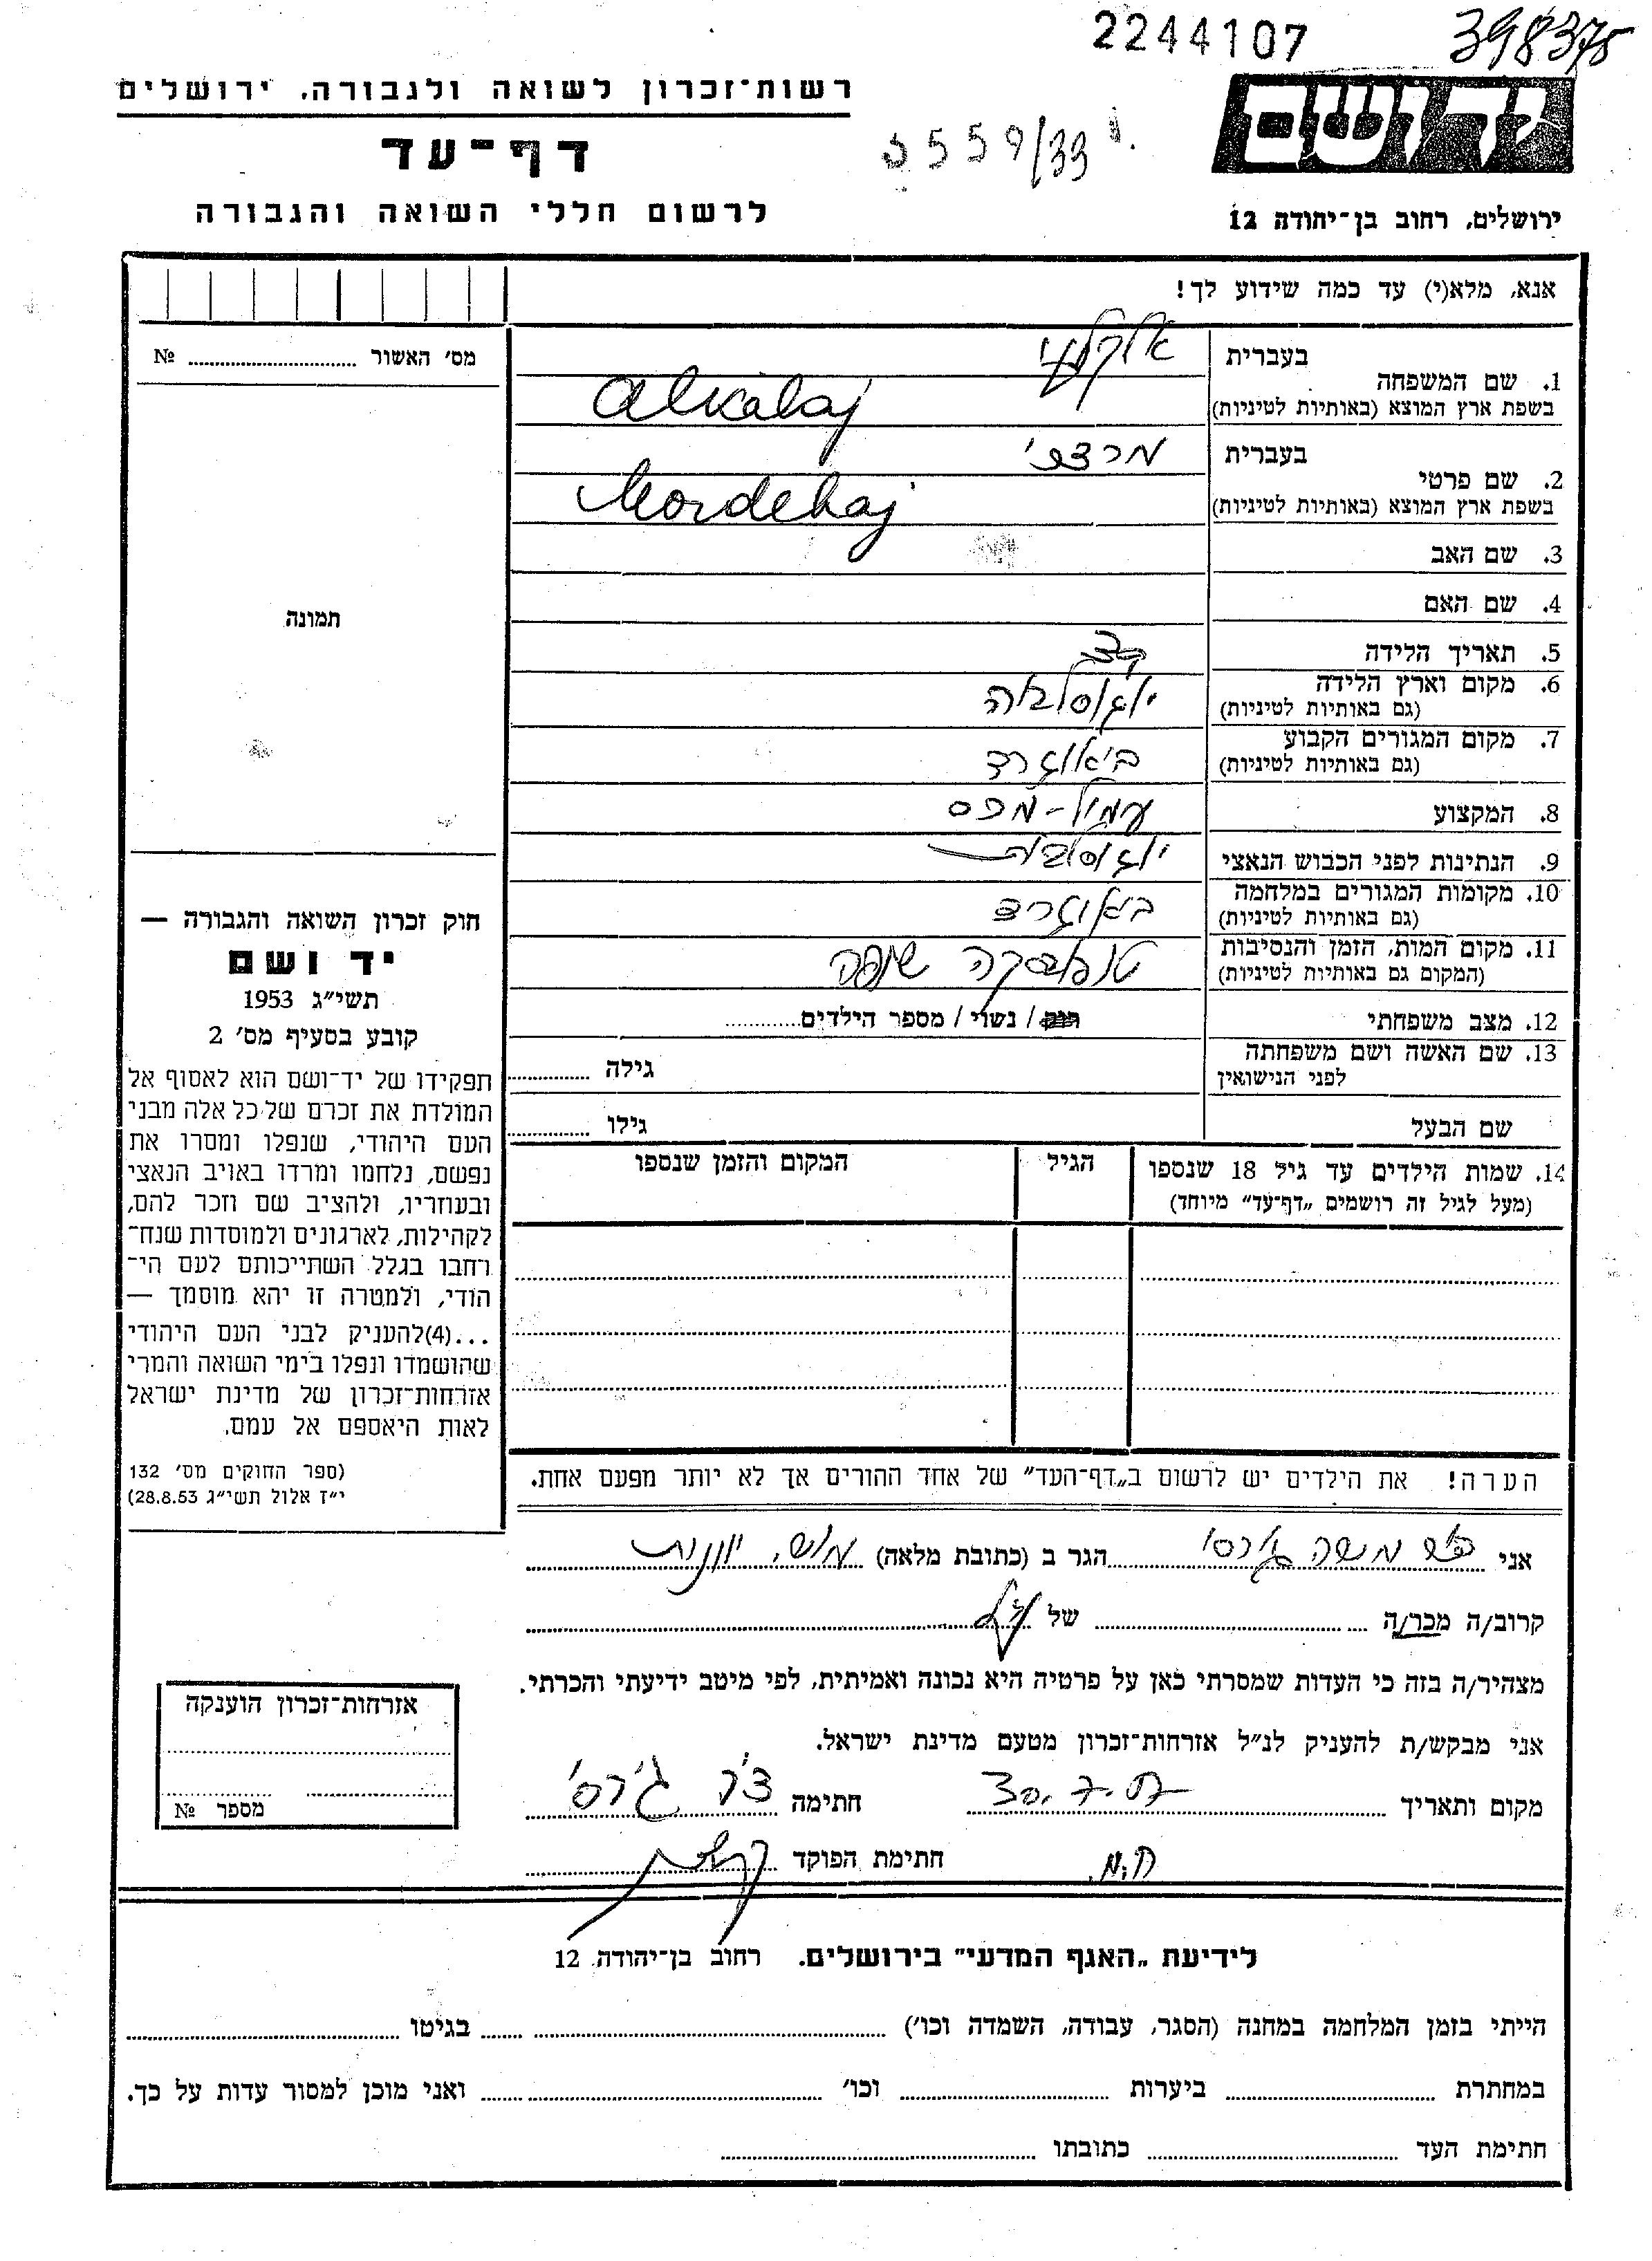 2244107
398375
רשות־זכרון לשואה ולגבורה, ירושלים
ידושם
דף־עד
5559/33
לרשום חללי השואה והגבורה
ירושלים, רחוב בן־יהודה 12
אנא, מלא(י) עד כמה שידוע לך!
מס׳ האשור № ..........
1. שם המשפחה
בעברית אלקלעי
בשפת ארץ המוצא (באותיות לטיניות) Alkalaj
2. שם פרטי
בעברית מרדכי
בשפת ארץ המוצא (באותיות לטיניות) Mordehaj
3. שם האב
4. שם האם
תמונה
5. תאריך הלידה
6. מקום וארץ הלידה יוגוסלביה
(גם באותיות לטיניות)
7. מקום המגורים הקבוע
(גם באותיות לטיניות)
8. המקצוע עמיל-מכס
9. הנתינות לפני הכבוש הנאצי
10. מקומות המגורים במלחמה
(גם באותיות לטיניות)
11. מקום המות, הזמן והנסיבות שופה
(המקום גם באותיות לטיניות)
12. מצב משפחתי רוק / נשוי / מספר הילדים..........
13. שם האשה ושם משפחתה גילה ..........
לפני הנישואין
שם הבעל גילו ..........
14. שמות הילדים עד גיל 18 שנספו הגיל המקום והזמן שנספו
(מעל לגיל זה רושמים „דף־עד” מיוחד)
חוק זכרון השואה והגבורה —
יד ושם
תשי״ג 1953
קובע בסעיף מס׳ 2
תפקידו של יד־ושם הוא לאסוף אל
המולדת את זכרם של כל אלה מבני
העם היהודי, שנפלו ומסרו את
נפשם, נלחמו ומרדו באויב הנאצי
ובעוזריו, ולהציב שם וזכר להם,
לקהילות, לארגונים ולמוסדות שנח־
רחבו בגלל השתייכותם לעם הי־
הודי, ולמטרה זו יהא מוסמך —
...(4)להעניק לבני העם היהודי
שהושמדו ונפלו בימי השואה והמרי
אזרחות־זכרון של מדינת ישראל
לאות היאספם אל עמם.
(ספר החוקים מס׳ 132
י״ז אלול תשי״ג 28.8.53)
הערה! את הילדים יש לרשום ב„דף־העד” של אחד ההורים אך לא יותר מפעם אחת.
אני משה הגר ב (כתובת מלאה)
קרוב/ה מכר/ה .......... של ..........
מצהיר/ה בזה כי העדות שמסרתי כאן על פרטיה היא נכונה ואמיתית, לפי מיטב ידיעתי והכרתי.
אני מבקש/ת להעניק לנ״ל אזרחות־זכרון מטעם מדינת ישראל.
מקום ותאריך .......... חתימה
חתימת הפוקד ..........
אזרחות־זכרון הוענקה
מספר №
לידיעת „האגף המדעי” בירושלים. רחוב בן־יהודה 12
הייתי בזמן המלחמה במחנה (הסגר, עבודה, השמדה וכו׳) .......... בגיטו ..........
במחתרת .......... ביערות .......... וכו׳ .......... ואני מוכן למסור עדות על כך.
חתימת העד .......... כתובתו ..........